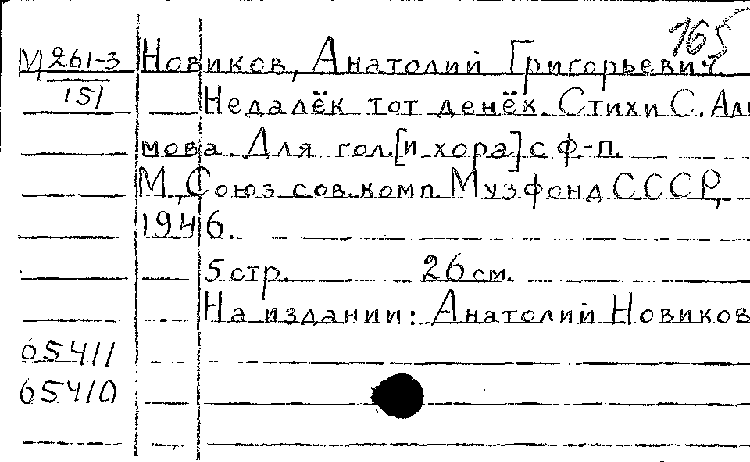 165
М 261-3 Новиков, Анатолий Григорьевич.
151 Недалёк тот денёк. Стихи С. Али
мова. Для гол. [и хора] с ф-п.
М., Союз сов. комп. Музфонд СССР,
1946.
5 стр. 26 см.
На издании: Анатолий Новиков
65411
65410